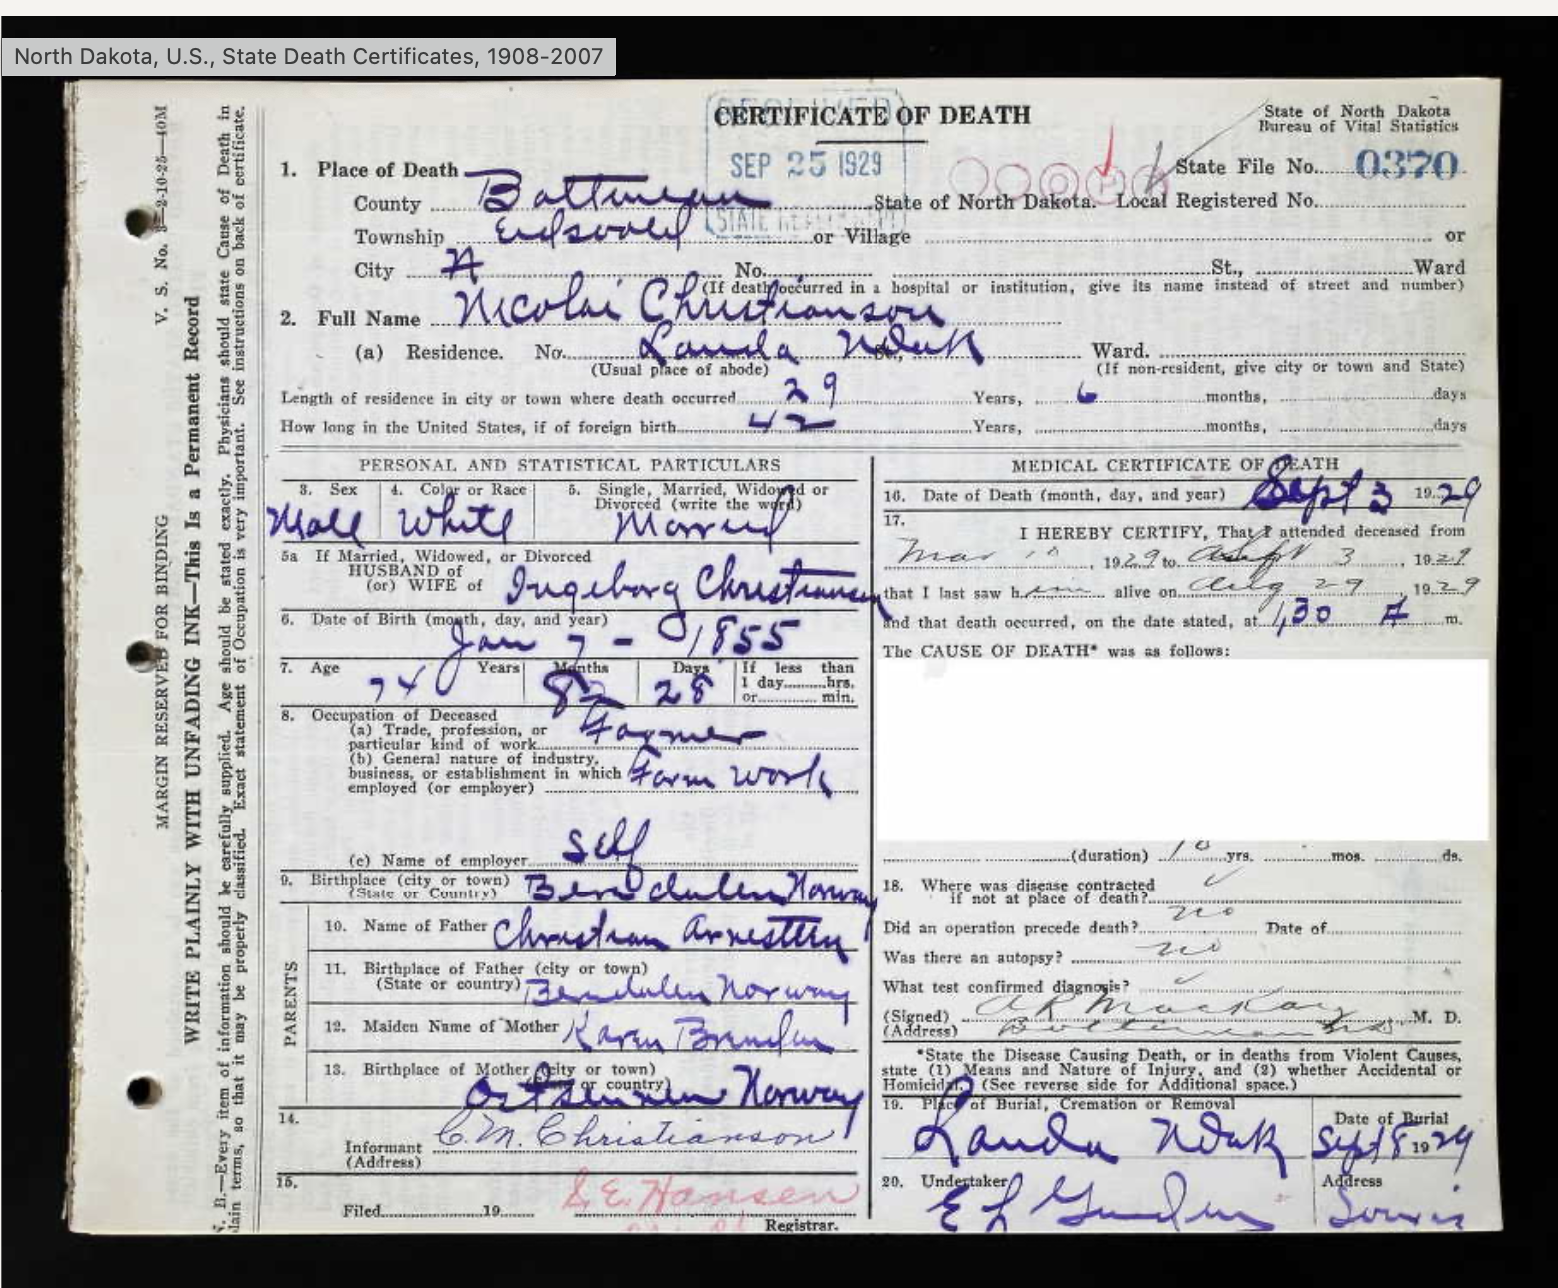 North Dakota, U.S., State Death Certificates, 1908-2007
V. S. No. 3—2-10-25—40M
MARGIN RESERVED FOR BINDING
WRITE PLAINLY WITH UNFADING INK—This Is a Permanent Record
N. B.—Every item of information should be carefully supplied. Age should be stated exactly. Physicians should state Cause of Death in
plain terms, so that it may be properly classified. Exact statement of Occupation is very important. See instructions on back of certificate.
CERTIFICATE OF DEATH
State of North Dakota
Bureau of Vital Statistics
RECEIVED
SEP 25 1929
STATE
State File No. 0370
1. Place of Death
County Bottineau State of North Dakota. Local Registered No.
Township Eidsvold or Village or
City No. St., Ward
(If death occurred in a hospital or institution, give its name instead of street and number)
2. Full Name Nicolai Christianson
(a) Residence. No. Landa NDak St., Ward.
(Usual place of abode) (If non-resident, give city or town and State)
Length of residence in city or town where death occurred 29 Years, 6 months, days
How long in the United States, if of foreign birth 42 Years, months, days
PERSONAL AND STATISTICAL PARTICULARS
3. Sex 4. Color or Race 5. Single, Married, Widowed or
Divorced (write the word)
Male White Married
5a If Married, Widowed, or Divorced
HUSBAND of
(or) WIFE of Ingeborg Christianson
6. Date of Birth (month, day, and year)
Jan 7 - 1855
7. Age Years Months Days If less than
1 day hrs.
or min.
74 8 28
8. Occupation of Deceased
(a) Trade, profession, or
particular kind of work Farmer
(b) General nature of industry,
business, or establishment in which
employed (or employer) Farm work
(c) Name of employer Self
9. Birthplace (city or town)
(State or Country) Norway
PARENTS
10. Name of Father Christian
11. Birthplace of Father (city or town)
(State or country) Norway
12. Maiden Name of Mother Karen
13. Birthplace of Mother (city or town)
(State or country) Norway
14.
Informant C. M. Christianson
(Address)
15.
Filed 19 S. E. Hansen
Registrar.
MEDICAL CERTIFICATE OF DEATH
16. Date of Death (month, day, and year) Sept 3 1929
17.
I HEREBY CERTIFY, That I attended deceased from
Mar , 1929 to Sept 3, 1929
that I last saw him alive on Aug 29, 1929
and that death occurred, on the date stated, at 1,30 A m.
The CAUSE OF DEATH* was as follows:
(duration) 10 yrs. mos. ds.
18. Where was disease contracted
if not at place of death?
Did an operation precede death? no Date of
Was there an autopsy? no
What test confirmed diagnosis?
(Signed) A R MacKay, M. D.
(Address) Bottineau ND
*State the Disease Causing Death, or in deaths from Violent Causes,
state (1) Means and Nature of Injury, and (2) whether Accidental or
Homicidal. (See reverse side for Additional space.)
19. Place of Burial, Cremation or Removal Date of Burial
Landa NDak Sept 8 1929
20. Undertaker Address
E L Souris